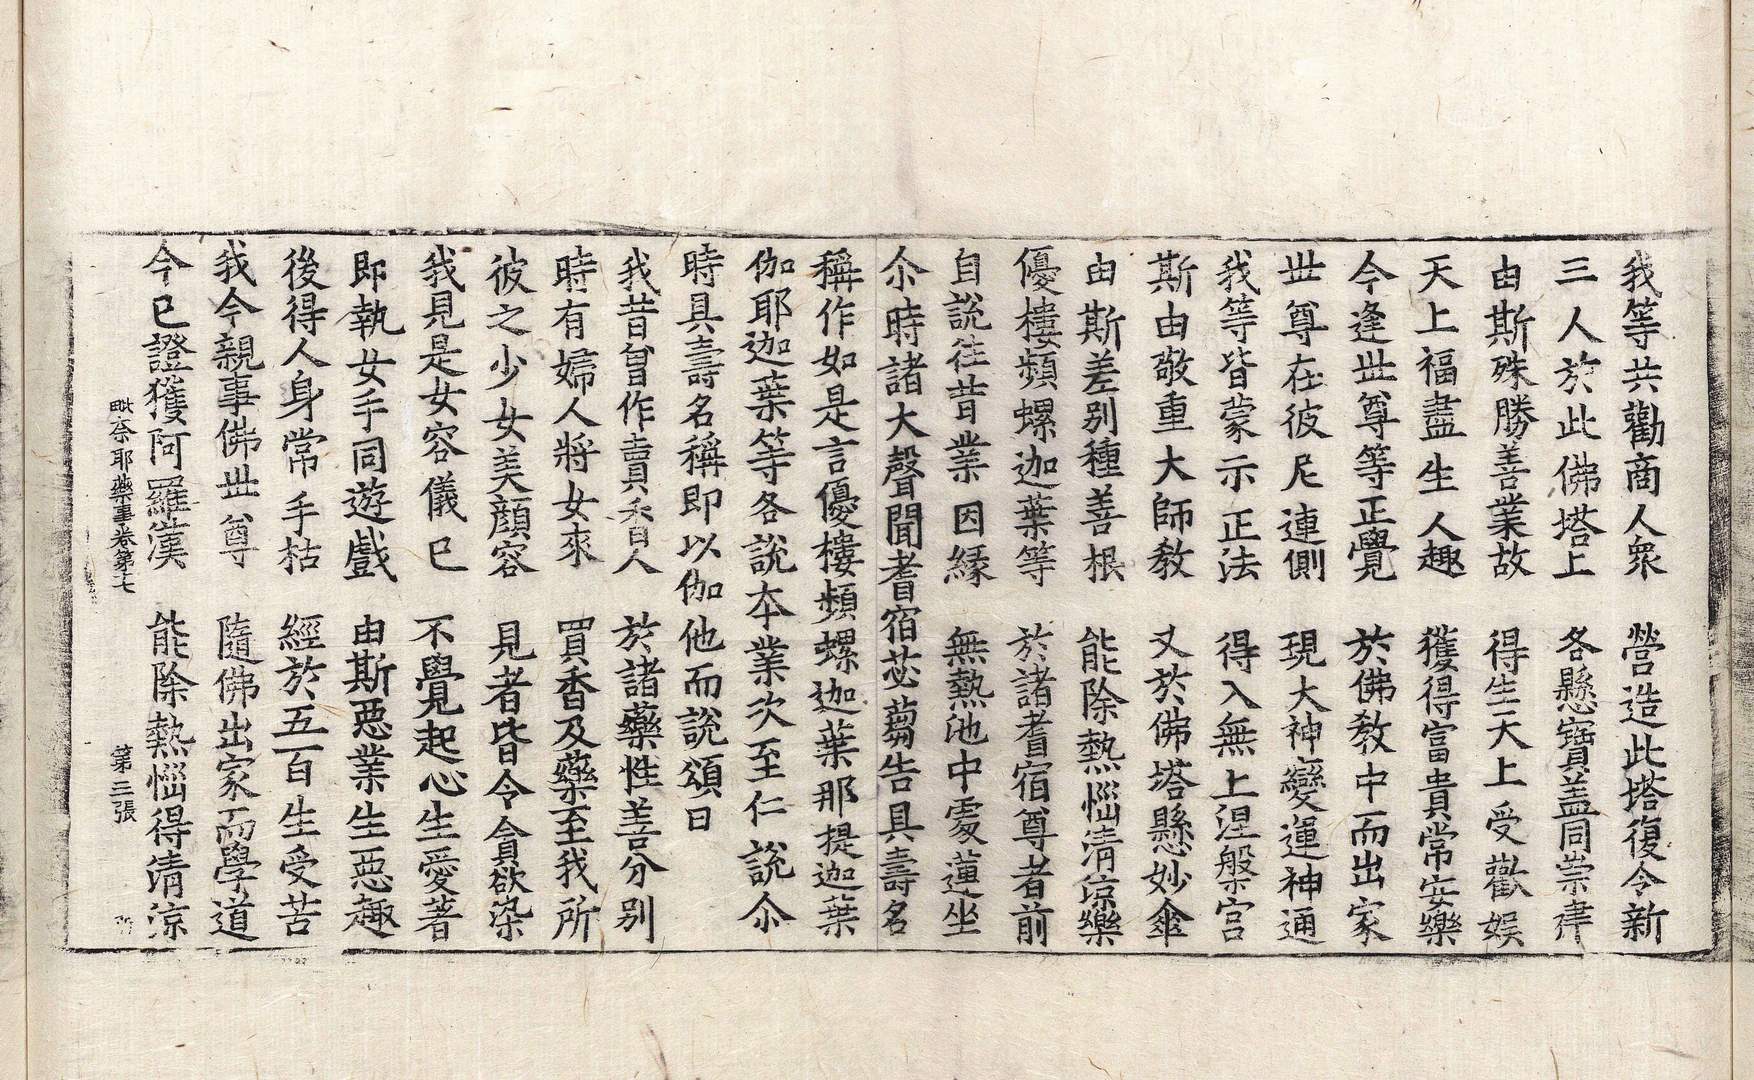 我等共勸商人衆　營造此塔復令新
三人於此佛塔上　各懸寶盖同崇建
由斯殊勝善業故　得生天上受歡娱
天上福盡生人趣　獲得富貴常安樂
今逢世尊等正覺　於佛教中而出家
世尊在彼尼連側　現大神變運神通
我等皆蒙示正法　得入無上涅槃宮
斯由敬重大師教　又於佛塔懸妙傘
由斯差別種善根　能除熱惱清涼樂
優樓頻螺迦葉等　於諸耆宿尊者前
自說往昔業因緣　無熱池中處蓮坐
尒時諸大聲聞耆宿苾蒭告具壽名
稱作如是言優樓頻螺迦葉那提迦葉
伽耶迦葉等各說本業次至仁說尒
時具壽名稱即以伽他而說頌曰
我昔曾作賣香人　於諸藥性善分別
時有婦人將女來　買香及藥至我所
彼之少女美顔容　見者皆令貪欲染
我見是女容儀已　不覺起心生愛著
即執女手同遊戲　由斯惡業生惡趣
後得人身常手枯　經於五百生受苦
我今親事佛世尊　隨佛出家而學道
今已證獲阿羅漢　能除熱惱得清涼
毗奈耶藥事卷第十七　第三張